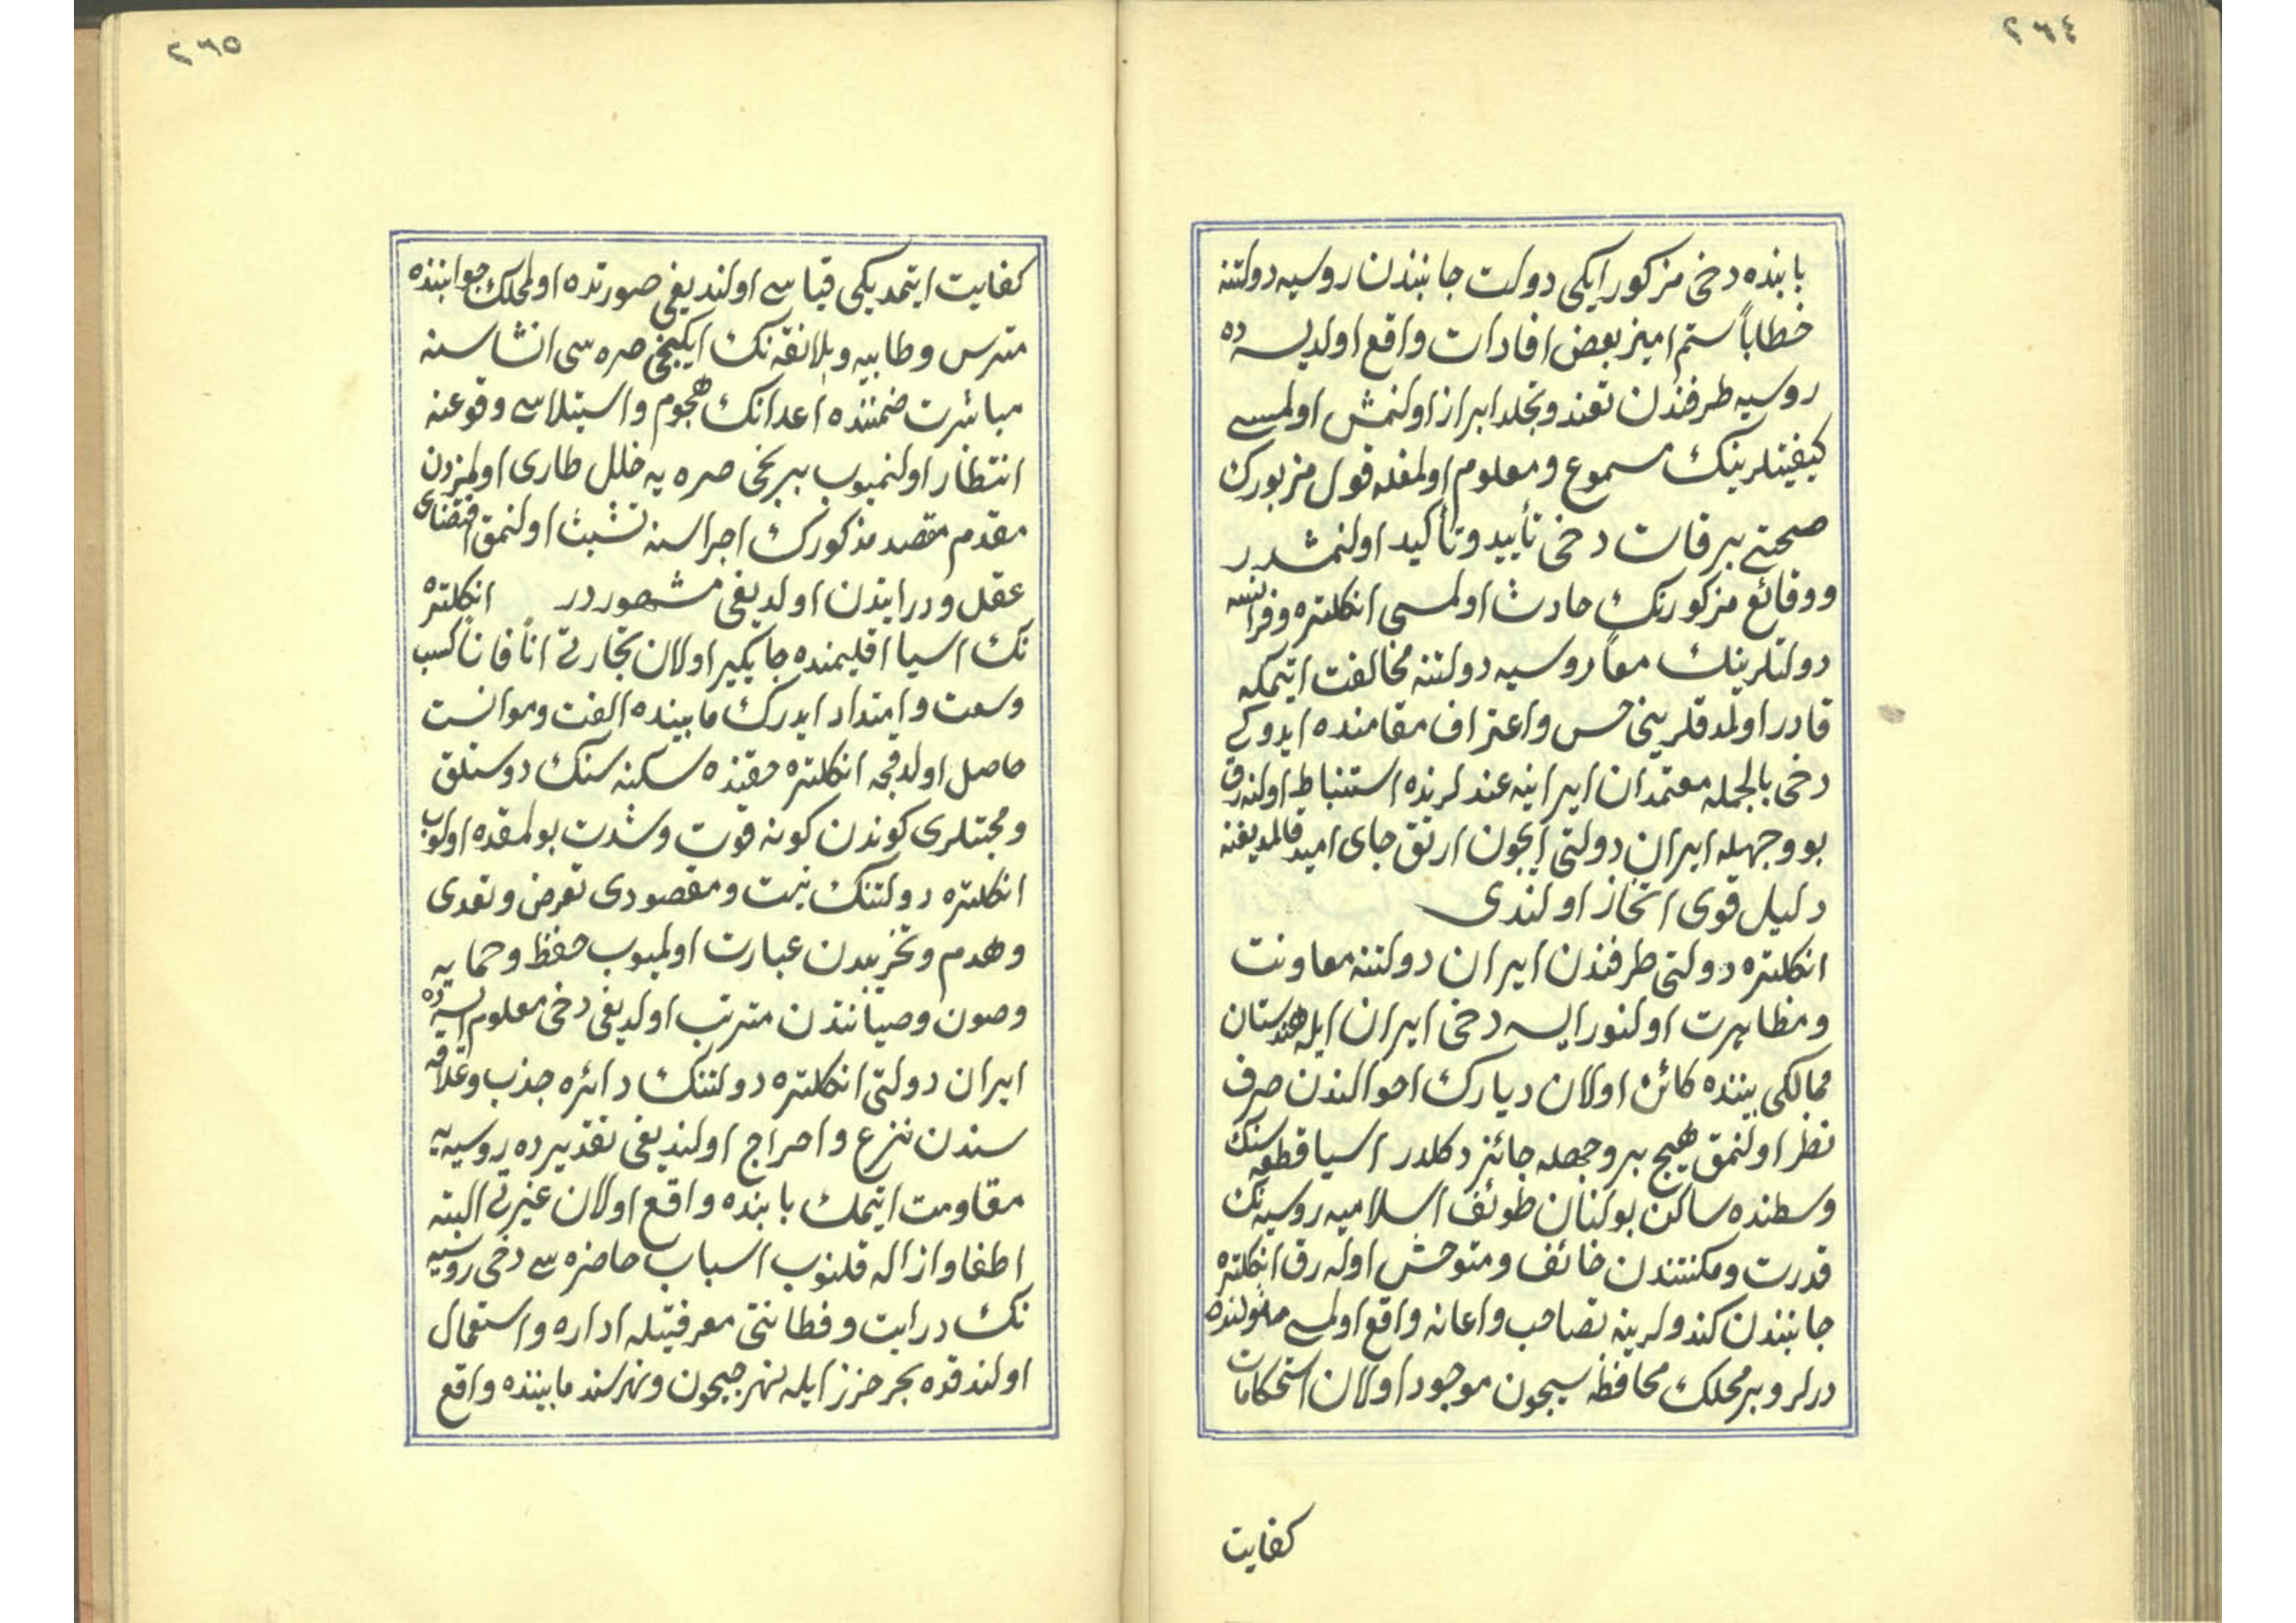 ٢٦٤
بابنده دخی مزکور ایکی دولت جانبندن روسیه دولتنه
خطاباً ستم امیز بعض افادات واقع اولدیسه ده
روسیه طرفندن تعند وتجلد ابراز اولنمش اولمسی
کیفیتلرینک مسموع ومعلوم اولمغله قول مزبورك
صحتی بر قات دخی تأیید وتأکید اولنمشدر
ووقائع مزکورنك حادث اولمسی انکلتره وفرانسه
دولتلرینك معاً روسیه دولتنه مخالفت ایتمکه
قادر اولمدقلرینی حس واعتراف مقامنده ایدوکی
دخی بالجمله معتمدان ایرانیه عندلرنده استنباط اولنه رق
بو وجهیله ایران دولتی ایچون ارتق جای امید قالمدیغنه
دلیل قوی اتخاز اولندی
انکلتره دولتی طرفندن ایران دولتنه معاونت
ومظاهرت اولنور ایسه دخی ایران ایله هندستان
ممالکی بیننده کائن اولان دیارك احوالندن صرف
نظر اولنمق هیچ بر وجهله جائز دکلدر اسیا قطعه سنك
وسطنده ساکن بولنان طوئف اسلامیه روسیه نك
قدرت ومکنتندن خائف ومتوحش اوله رق انکلتره
جانبندن کندولرینه تصاحب واعانه واقع اولمسی مأمولنده
درلر وبر محلك محافظه سیچون موجود اولان استحکامات
کفایت
٢٦٥
کفایت ایتمدیکی قیاسی اولندیغی صورتده اولمحلك جوابنده
مترس وطابیه وپلانقه نك ایکنجی صره سی انشاسنه
مباشرت ضمننده اعدانك هجوم واستیلاسی وقوعنه
انتظار اولنمیوب برنجی صره یه خلل طاری اولمزدن
مقدم مقصد مذکورك اجراسنه تشبث اولنمق اقتضای
عقل ودرایتدن اولدیغی مشهوردر انکلتره
نك اسیا اقلیمنده جایکیر اولان تجارتی اناً فاناً کسب
وسعت وامتداد ایدرك مابینده الفت وموانست
حاصل اولدقجه انکلتره حقنده سکنه سنك دوستلق
ومحبتلری کوندن کونه قوت وشدت بولمقده اولوب
انکلتره دولتنك نیت ومقصودی تعرض وتعدی
وهدم وتخریبدن عبارت اولمیوب حفظ وحمایه
وصون وصیانتدن مترتب اولدیغی دخی معلوم ایسه ده
ایران دولتی انکلتره دولتنك دائره جذب وعلاقه
سندن نزع واحراج اولندیغی تقدیرده روسیه یه
مقاومت ایتمك بابنده واقع اولان غیرتی البته
اطفا وازاله قلنوب اسباب حاضره سی دخی روسیه
نك درایت وفطانتی معرفتیله اداره واستعمال
اولندقده بحر حزز ایله نهر جیحون ونهر سند مابیننده واقع